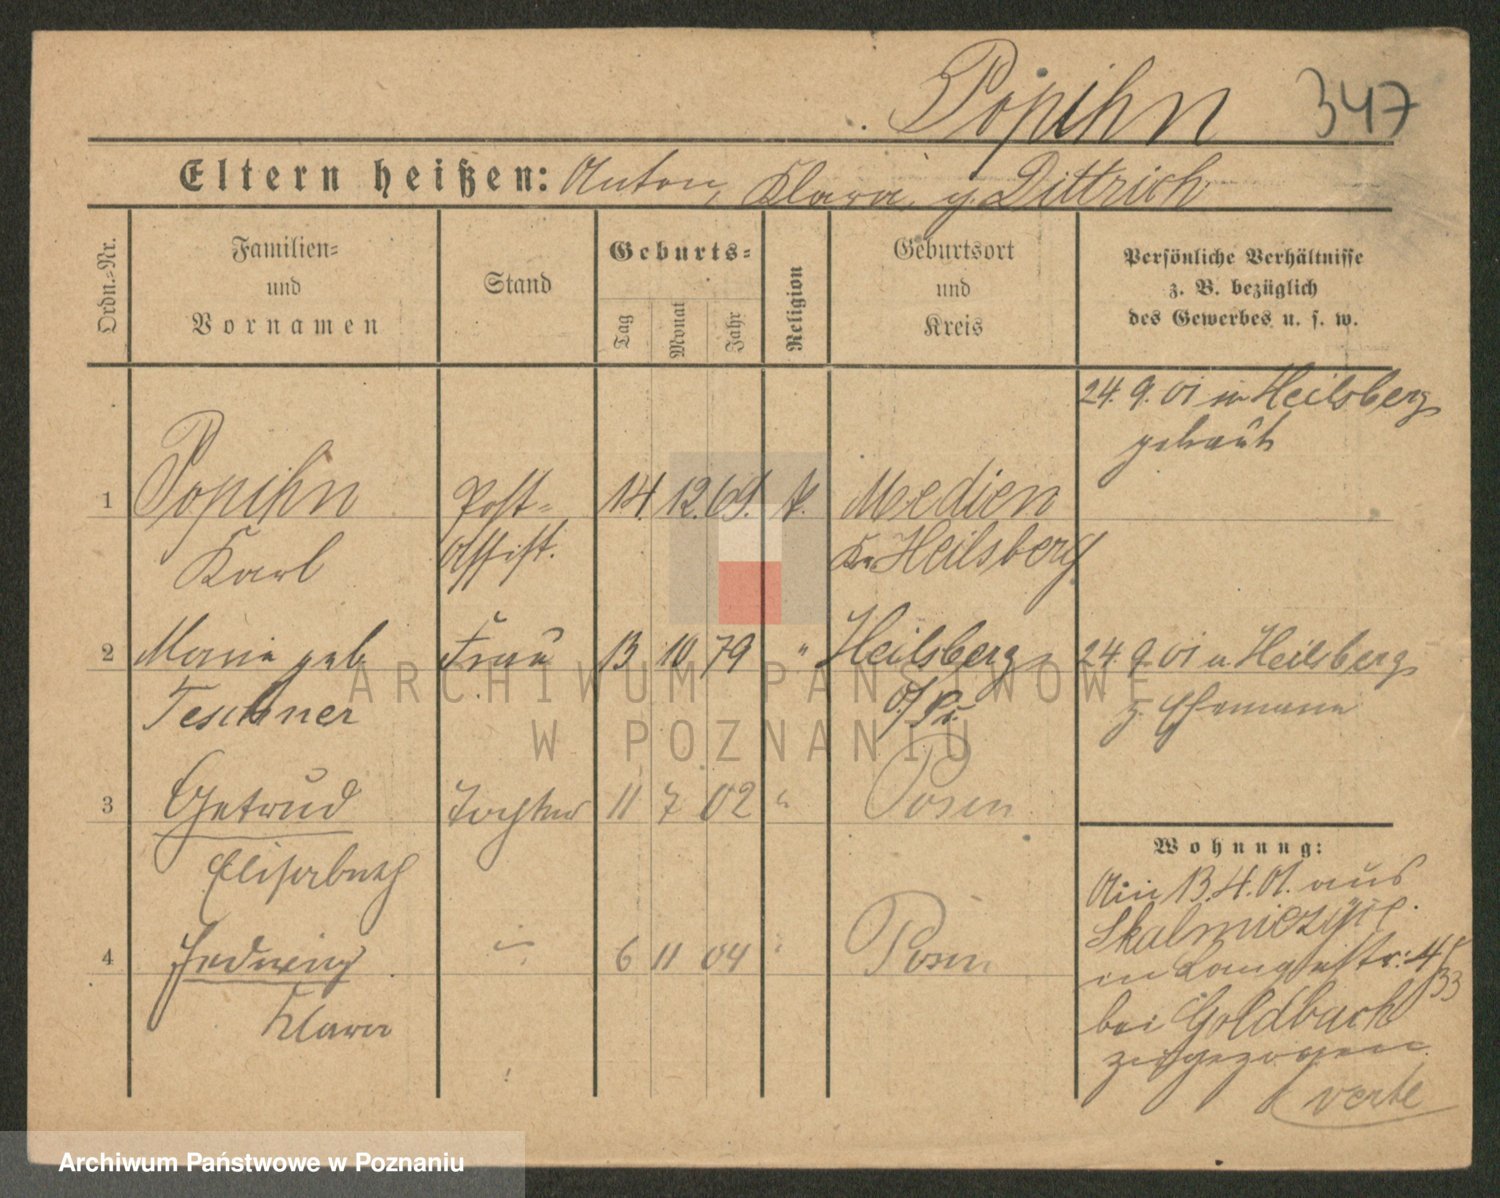 Popihn 347
Eltern heißen: Anton, Klara g. Dittrich
Ordn.-Nr.
Familien-
und
Vornamen
Stand
Geburts-
Tag
Monat
Jahr
Religion
Geburtsort
und
Kreis
Persönliche Verhältnisse
z. B. bezüglich
des Gewerbes u. s. w.
24. 9. 01 in Heilsberg
getraut
1 Popihn Post- 14. 12. 69. k. Medien
Karl Assist. Kr. Heilsberg
2 Marie geb. Frau 13 10 79 " Heilsberg 24. 9. 01 in Heilsberg
Teschner O/Pr. z. Ehemann
3 Getrud Tochter 11 7 02 " Posen
Elisabeth
Wohnung:
Am 13. 4. 01. aus
Skalmierzyce
4 Hedwig " 6 11 04 " Posen
in Langestr: 4
33
Klara
bei Goldbach
zugezogen
verte
ARCHIWUM PAŃSTWOWE
W POZNANIU
Archiwum Państwowe w Poznaniu